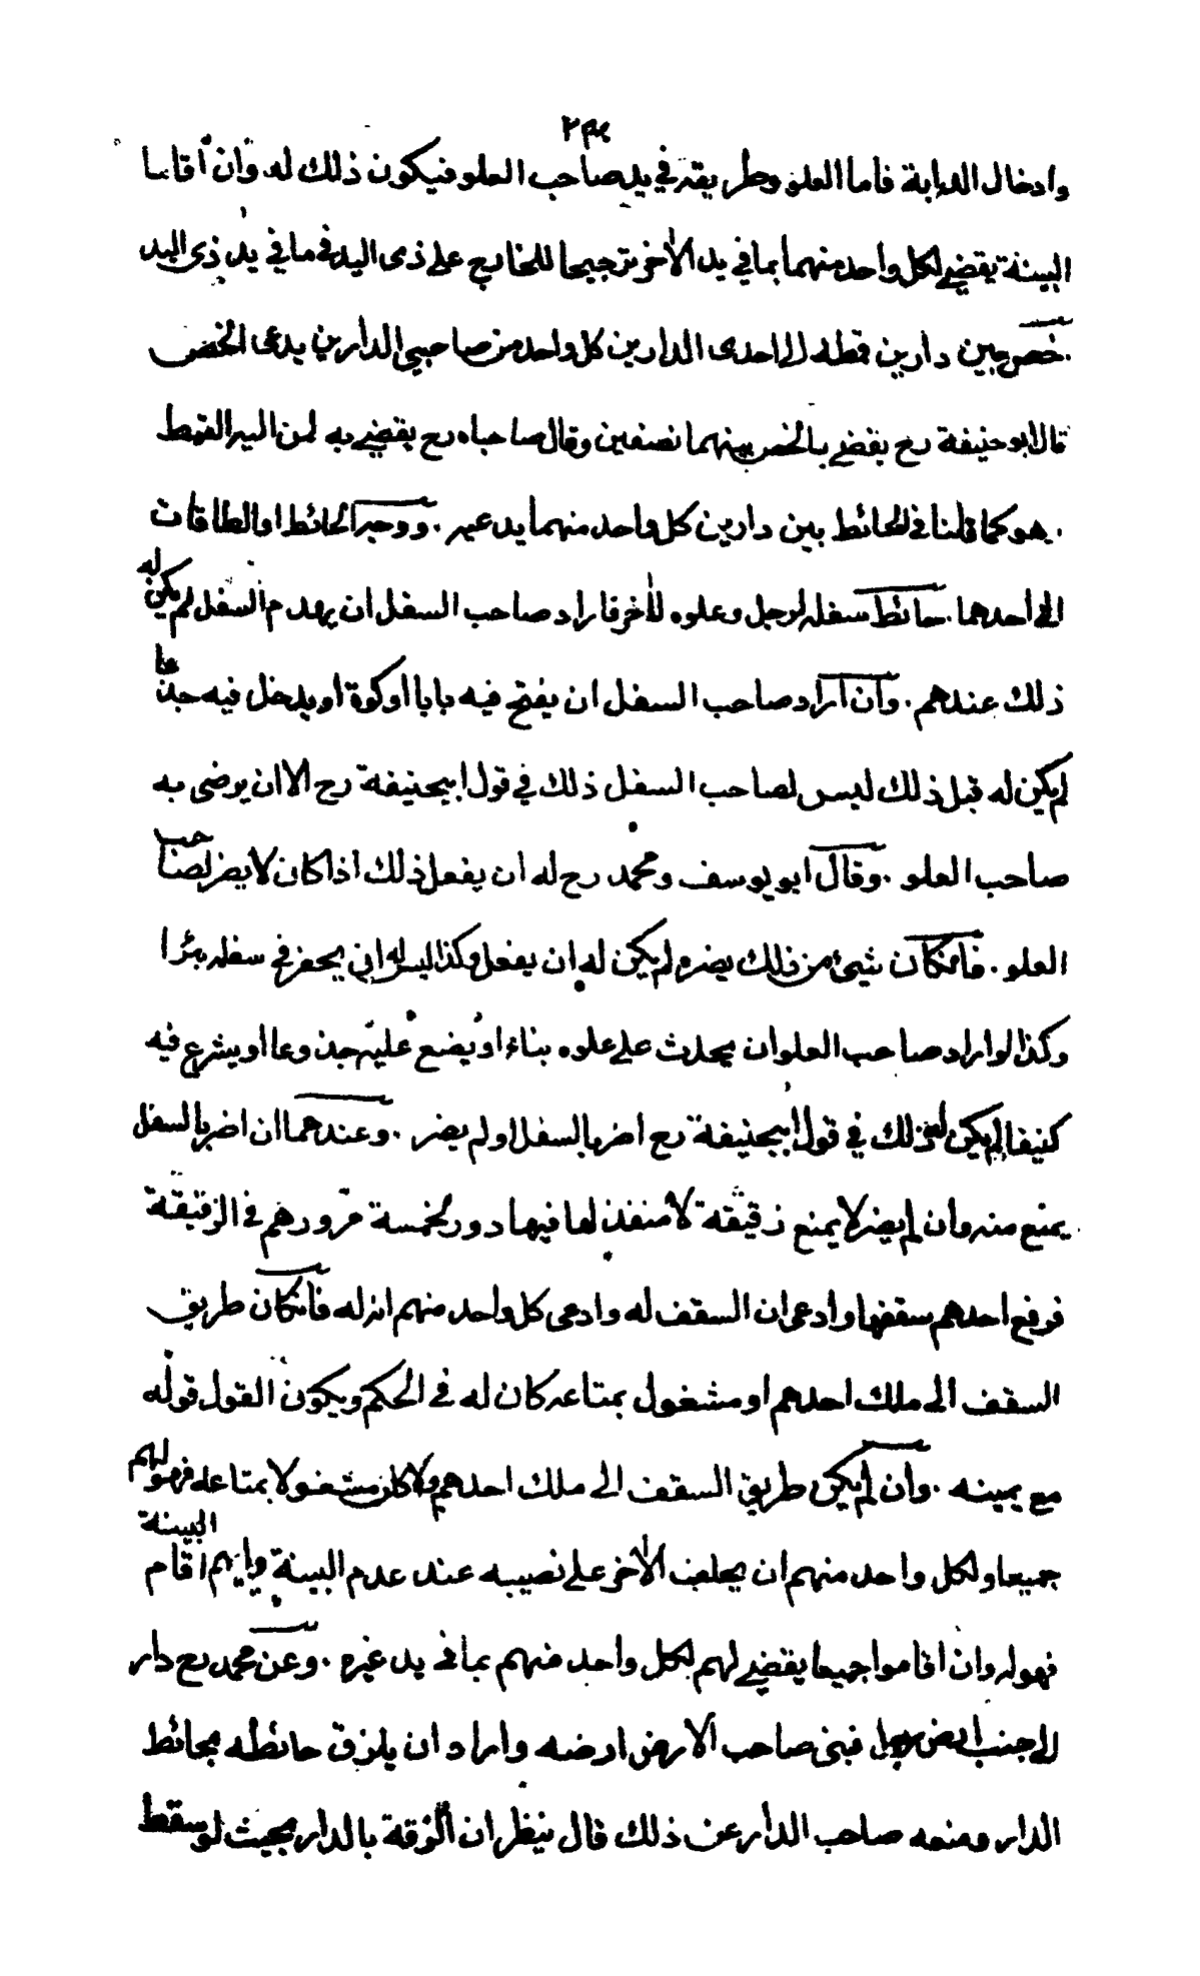 ٢٣٤
وادخال الدابة فاما العلو وطريقه في يد صاحب العلو فيكون ذلك له وان اقاما
البينة يقضي لكل واحد منهما بما في يد الآخر ترجيحا للخارج على ذى اليد في ما في يد ذى اليد
خص بين دارين قمطه الى احدى الدارين كل واحد من صاحبي الدارين يدعى الخص
قال ابو حنيفة رح يقضي بالخص بينهما نصفين وقال صاحباه رح يقضي به لمن اليه القمط
هو كما قلنا في الحائط بين دارين كل واحد منهما يدعيه . ووجه الحائط او الطاقات
الى احدهما . حائط سفله لرجل وعلوه للآخر فاراد صاحب السفل ان يهدم السفل لم يكن له
ذلك عندهم . وان اراد صاحب السفل ان يفتح فيه بابا او كوة او يدخل فيه جذعا
لم يكن له قبل ذلك ليس لصاحب السفل ذلك في قول ابيحنيفة رح الا ان يرضى به
صاحب العلو . وقال ابو يوسف ومحمد رح له ان يفعل ذلك اذا كان لا يضر لصاحب
العلو . فانكان شيئ من ذلك يضره لم يكن له ان يفعل وكذا ليس له ان يحفر في سفله بئرا
وكذا لو اراد صاحب العلو ان يحدث على علوه بناء او يضع عليه جذوعا او يشرع فيه
كنيفا لم يكن له ذلك في قول ابيحنيفة رح اضر بالسفل او لم يضر . وعندهما ان اضر بالسفل
يمنع منه وان لم يضر لا يمنع زقيقة لا منفذ لها فيها دور لخمسة ممر دورهم في الزقيقة
فرفع احدهم سقفها وادعى ان السقف له وادعى كل واحد منهم انه له فانكان طريق
السقف الى ملك احدهم او مشغول بمتاعه كان له في الحكم ويكون القول قوله
مع يمينه . وان لم يكن طريق السقف الى ملك احدهم ولا كان مشغولا بمتاعه فهو لهم
جميعا ولكل واحد منهم ان يحلف الآخر على نصيبه عند عدم البينة وايهم اقام البينة
فهو له وان اقاموا جميعا يقضي لهم لكل واحد منهم بما في يد غيره . وعن محمد رح دار
الى جنب ارض رجل فبنى صاحب الارض ارضه واراد ان يلزق حائطه بحائط
الدار ومنعه صاحب الدار عن ذلك قال ينظر ان الزقة بالدار بحيث لو سقط